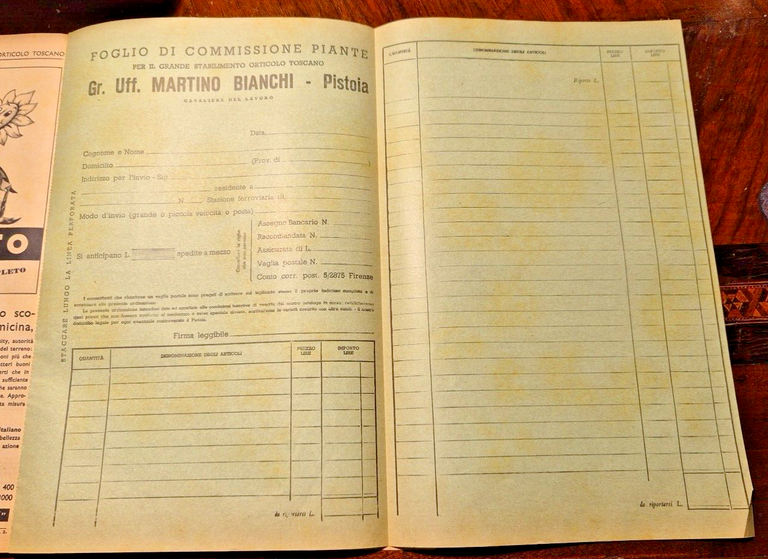 ORTICOLO TOSCANO
TO
PLETO
o sco-
micina,
ity, autorità
del terreno:
oni più che
tteri buoni
erti che in
sufficiente
he saranno
e. Appro-
ta misura
italiano
bellezza
azione
400
1000
FOGLIO DI COMMISSIONE PIANTE
PER IL GRANDE STABILIMENTO ORTICOLO TOSCANO
Gr. Uff. MARTINO BIANCHI - Pistoia
CAVALIERE DEL LAVORO
Data
Cognome e Nome
Domicilio (Prov. di )
Indirizzo per l'invio - Sig.
residente a
N. Stazione ferroviaria di
Modo d'invio (grande o piccola velocità o posta)
Si anticipano L. spedite a mezzo
Assegno Bancario N.
Raccomandata N.
Assicurata di L.
Vaglia postale N.
Conto corr. post. 5/2875 Firenze
STACCARE LUNGO LA LINEA PERFORATA
Firma leggibile
QUANTITÀ DENOMINAZIONE DEGLI ARTICOLI PREZZO LIRE IMPORTO LIRE
da riportarsi L.
QUANTITÀ DENOMINAZIONE DEGLI ARTICOLI PREZZO LIRE IMPORTO LIRE
Riporto L.
da riportarsi L.